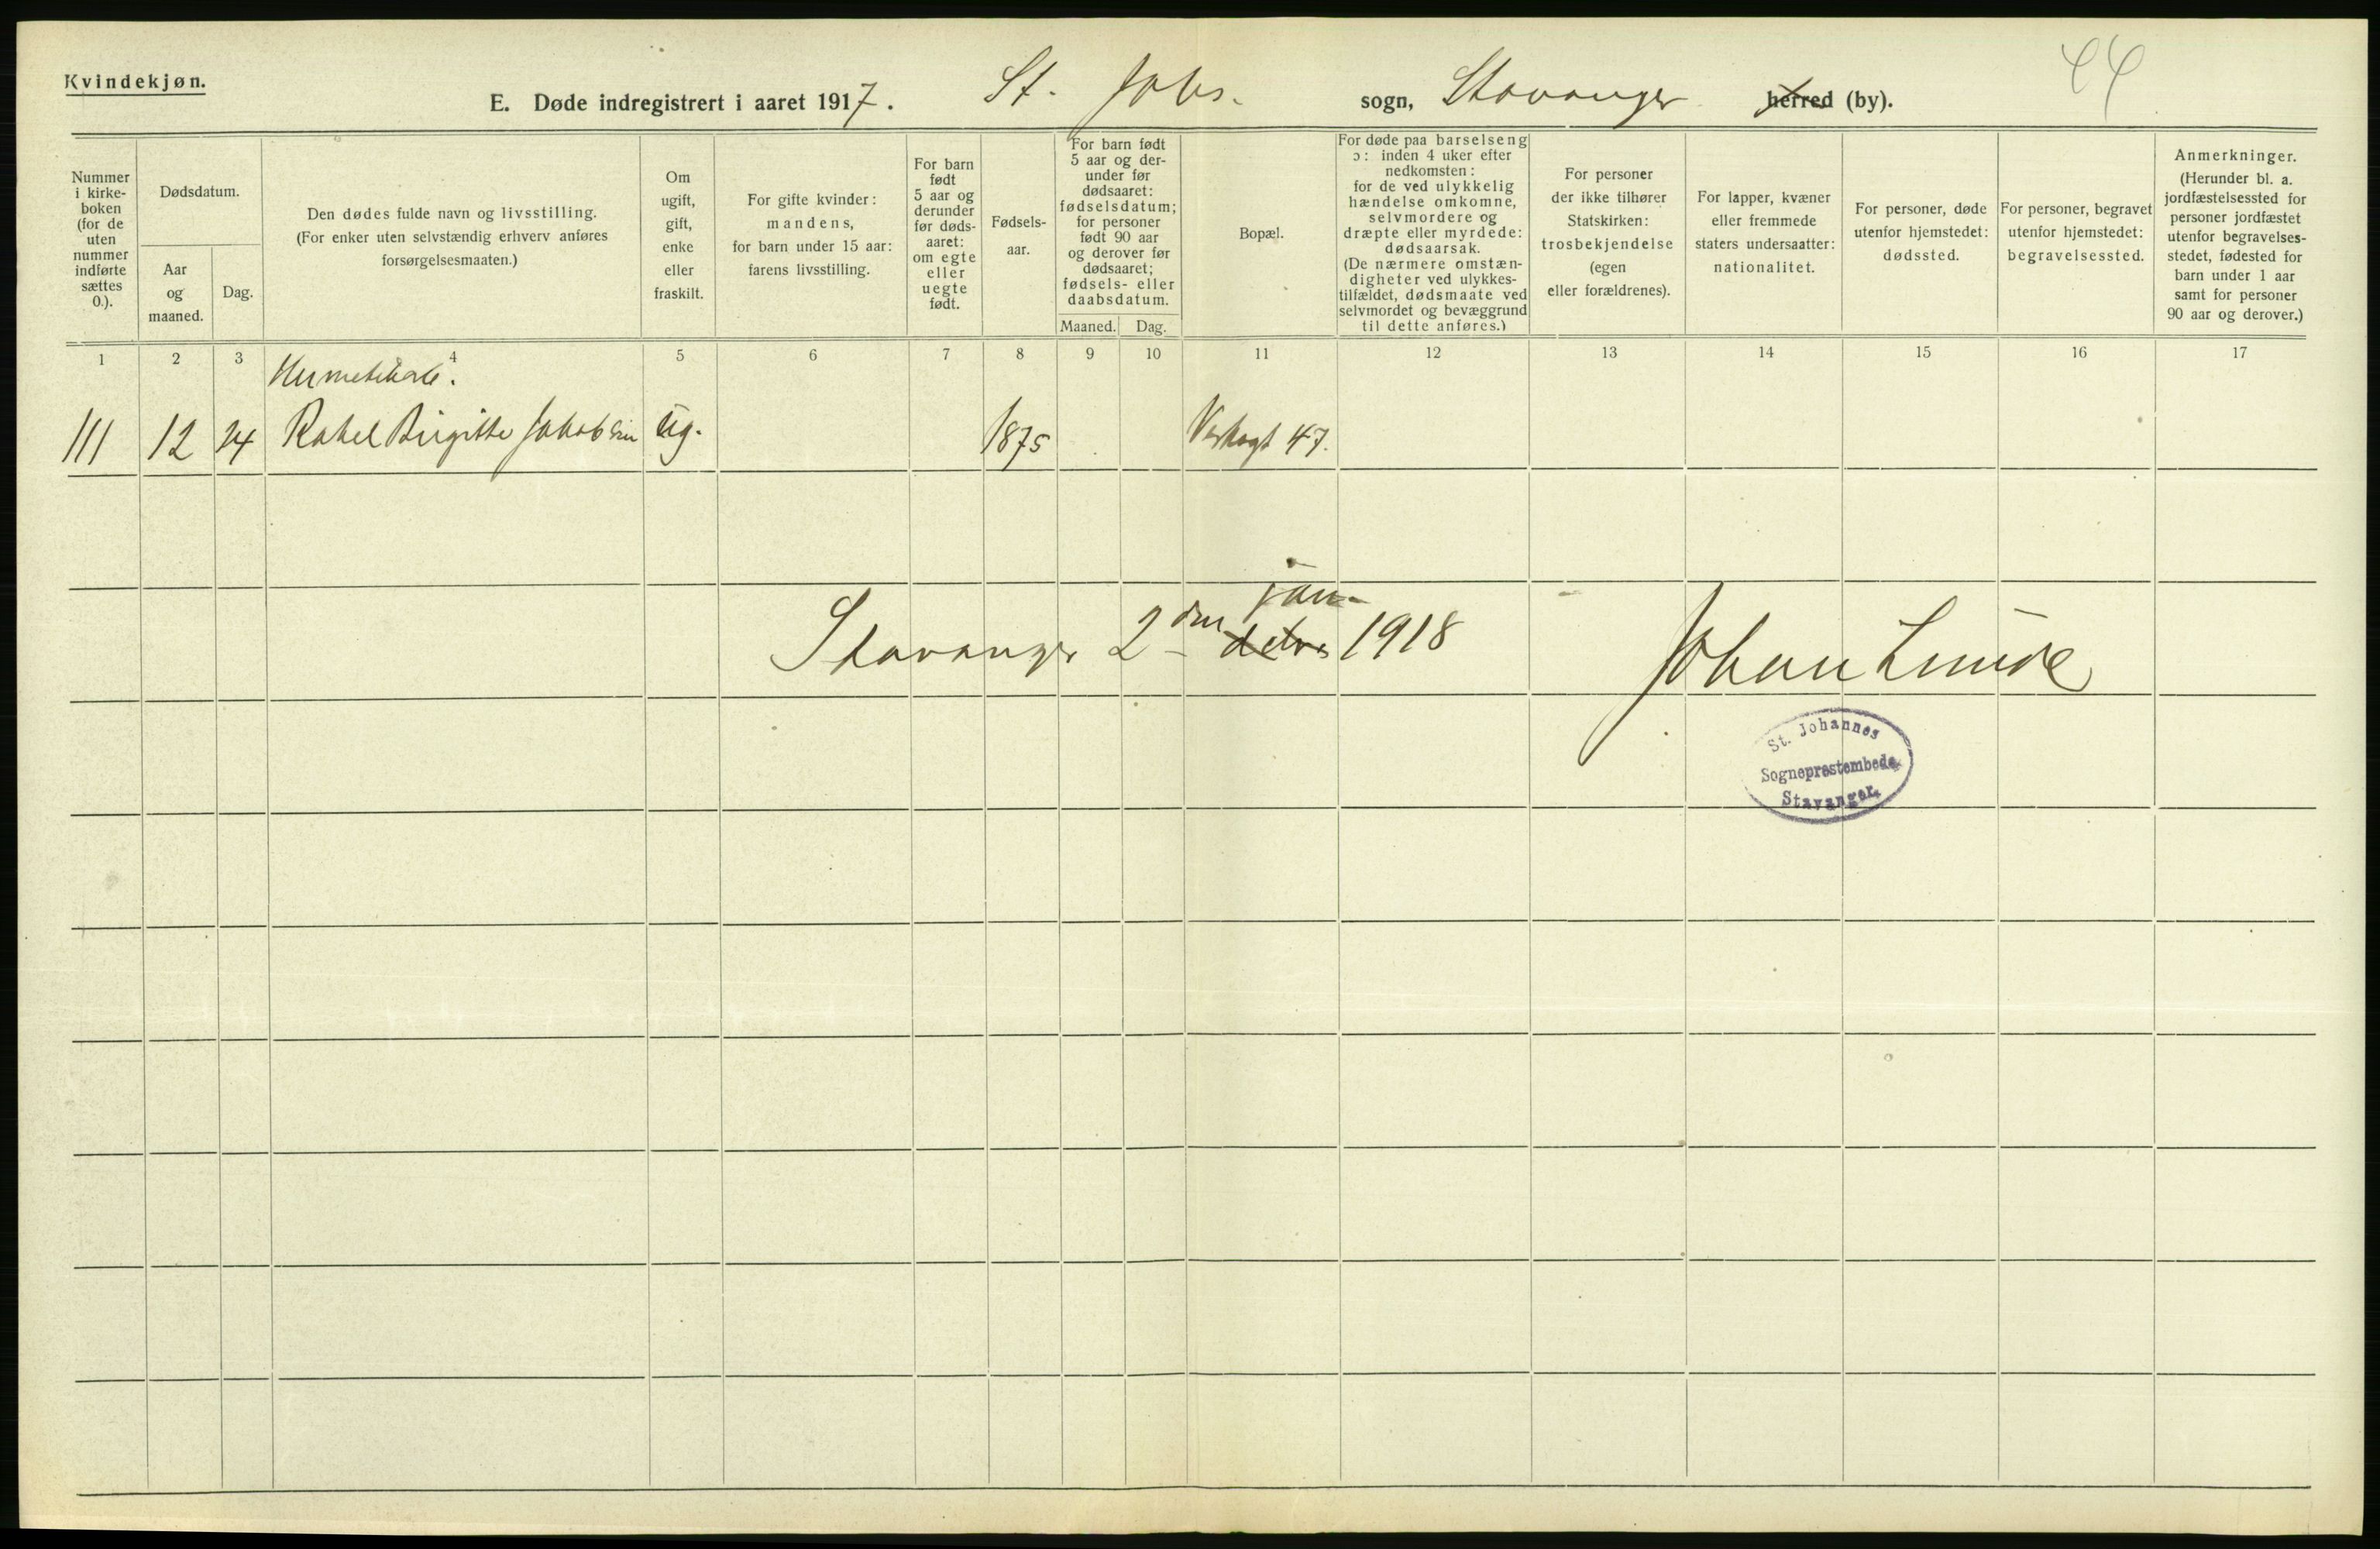 Kvindekjøn.
E. Døde indregistrert i aaret 1917. St. Johs. sogn, Stavanger herred (by).
44
Nummer i kirke- boken (for de uten nummer indførte sættes 0.).
Dødsdatum.
Aar og maaned.
Dag.
Den dødes fulde navn og livsstilling.
(For enker uten selvstændig erhverv anføres
forsørgelsesmaaten.)
Om ugift, gift, enke eller fraskilt.
For gifte kvinder:
mandens,
for barn under 15 aar:
farens livsstilling.
For barn født 5 aar og derunder før døds- aaret: om egte eller uegte født.
Fødsels- aar.
For barn født 5 aar og der- under før dødsaaret: fødselsdatum; for personer født 90 aar og derover før dødsaaret; fødsels- eller daabsdatum.
Maaned. Dag.
Bopæl.
For døde paa barselseng
ɔ: inden 4 uker efter
nedkomsten:
for de ved ulykkelig
hændelse omkomne,
selvmordere og
dræpte eller myrdede:
dødsaarsak.
(De nærmere omstæn-
digheter ved ulykkes-
tilfældet, dødsmaate ved
selvmordet og bevæggrund
til dette anføres.)
For personer
der ikke tilhører
Statskirken:
trosbekjendelse
(egen
eller forældrenes).
For lapper, kvæner
eller fremmede
staters undersaatter:
nationalitet.
For personer, døde
utenfor hjemstedet:
dødssted.
For personer, begravet
utenfor hjemstedet:
begravelsessted.
Anmerkninger.
(Herunder bl. a.
jordfæstelsessted for
personer jordfæstet
utenfor begravelses-
stedet, fødested for
barn under 1 aar
samt for personer
90 aar og derover.)
1 2 3 4 5 6 7 8 9 10 11 12 13 14 15 16 17
111 12 24 Rakel Birgitte Jakobsen ug. 1875 47.
jan.
Stavanger 2 den 1918
Johan Lunde
St. Johannes
Sogneprestembede
Stavanger.